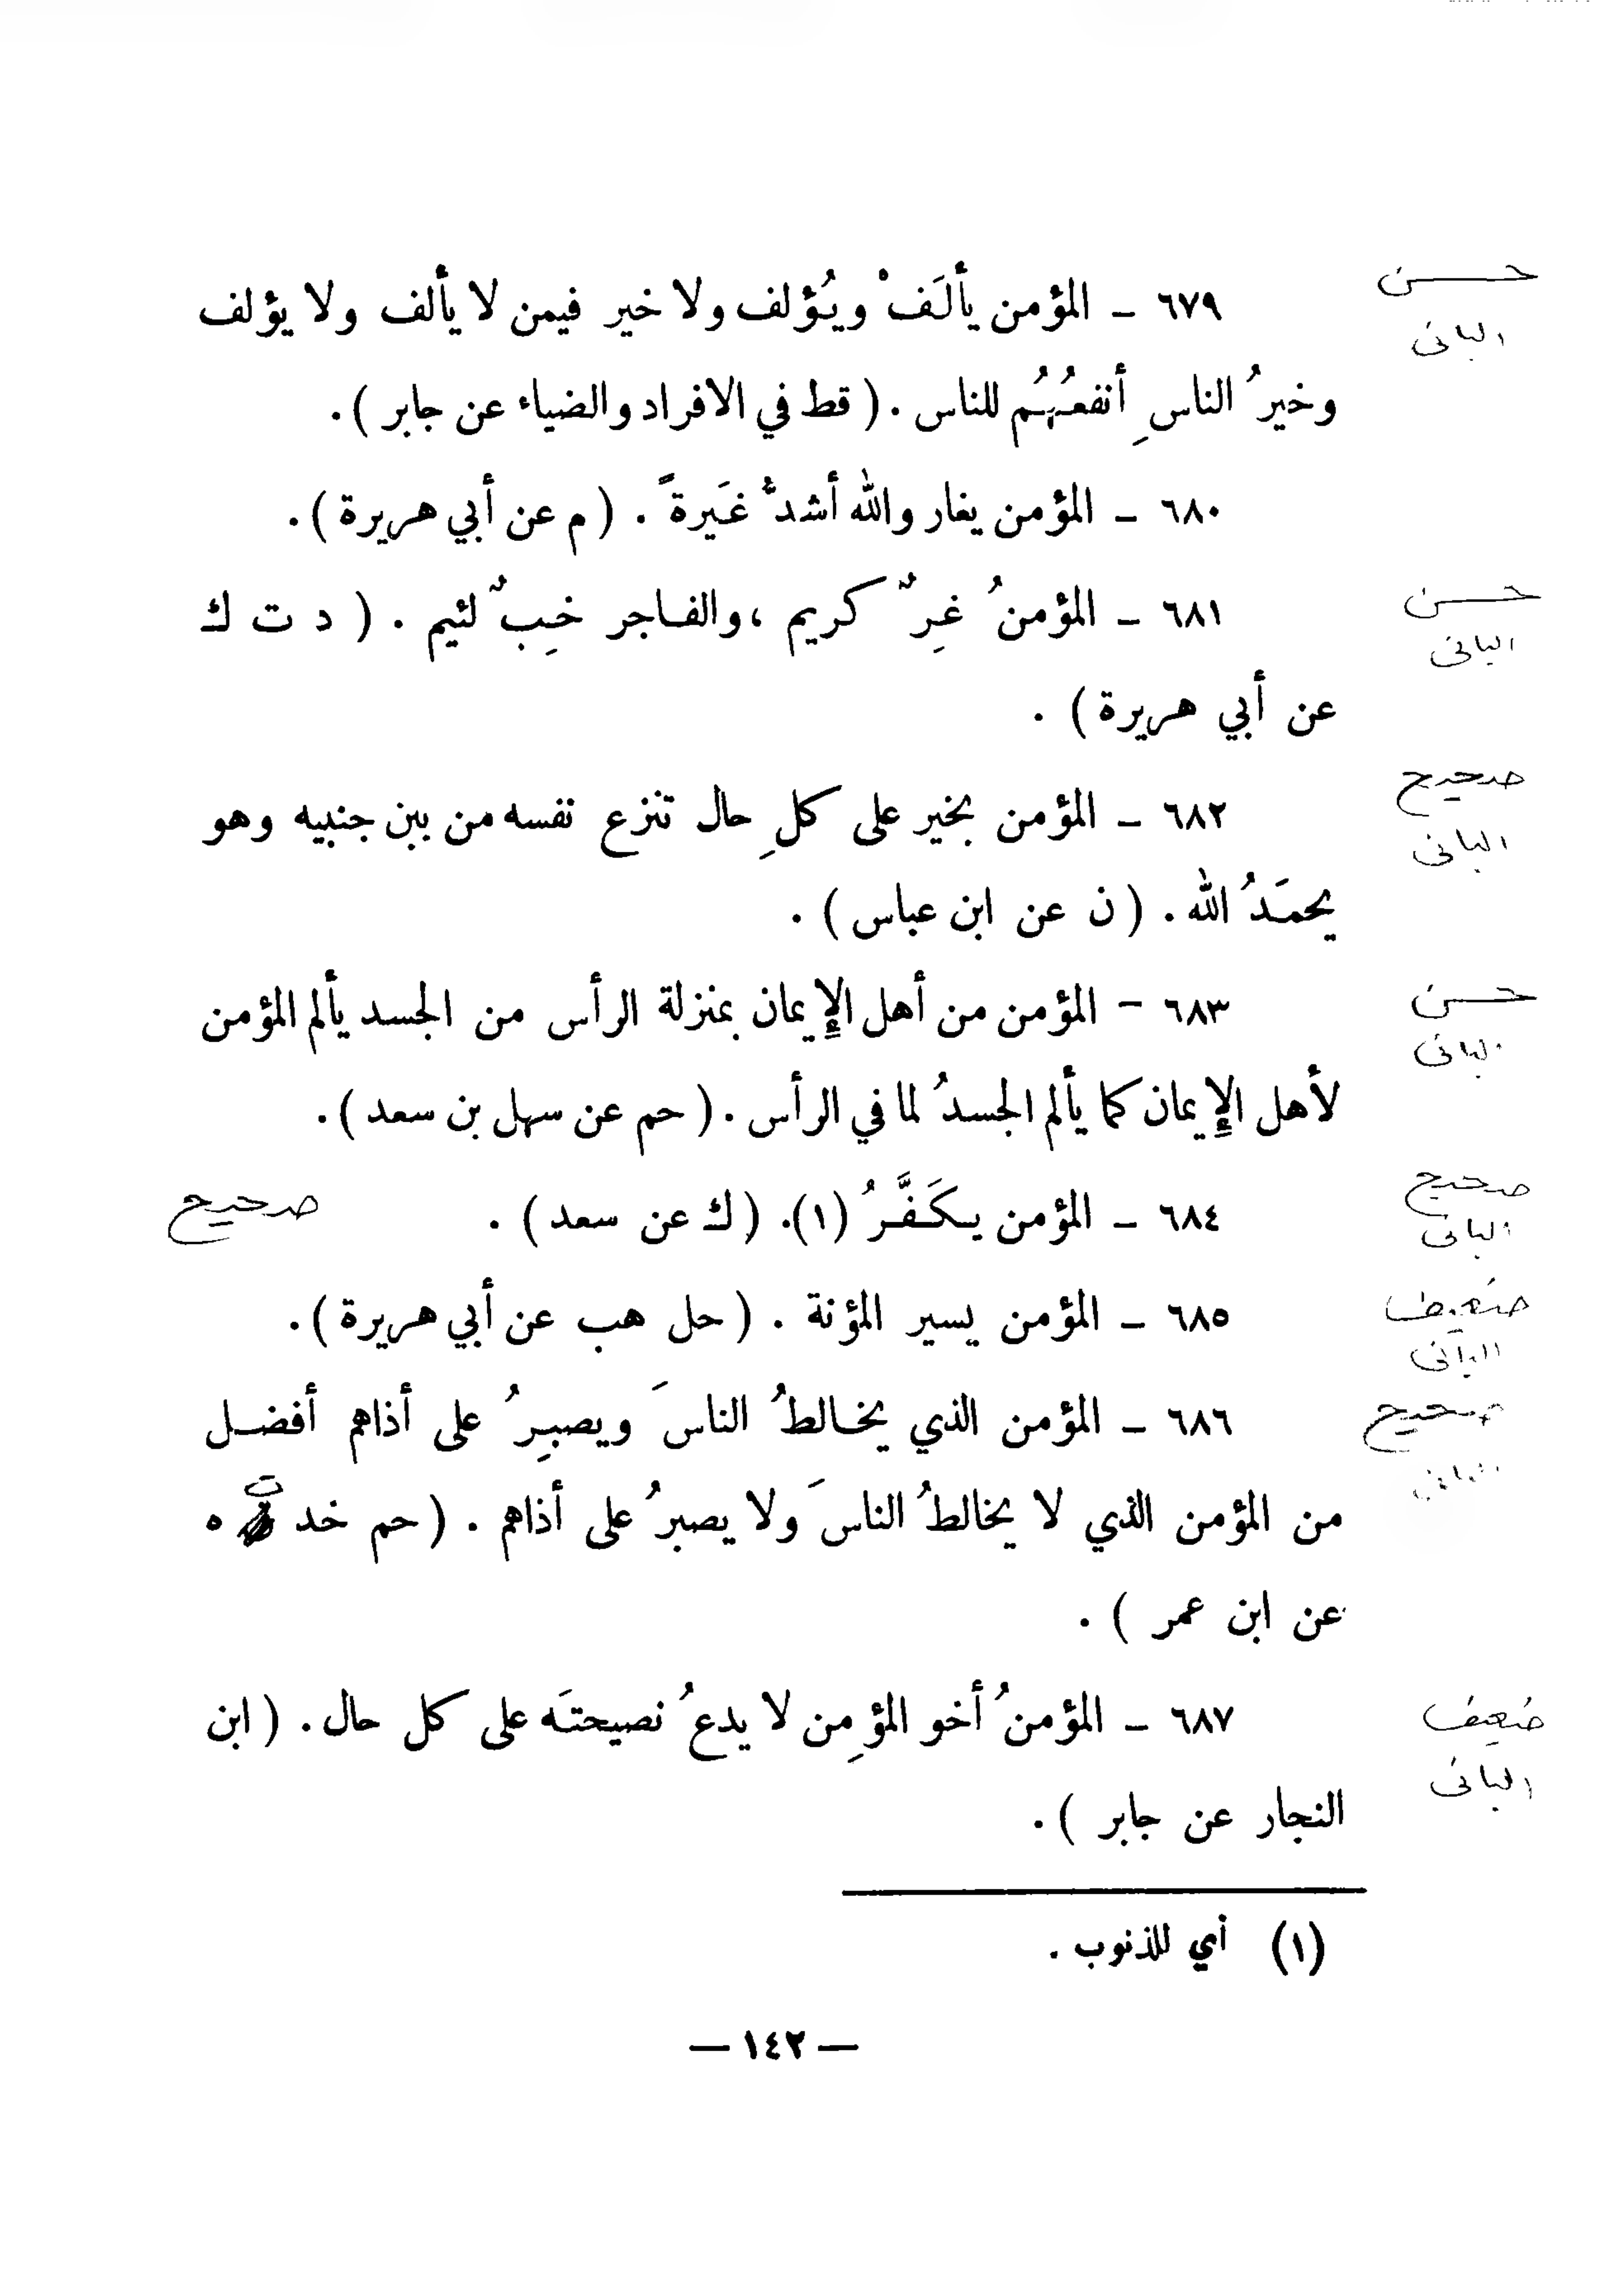 حسن
٦٧٩ – المؤمن يألَفْ ويُؤلف ولا خير فيمن لا يألف ولا يؤلف
البانى
وخيرُ الناسِ أنفعُهُم للناس . ( قط في الافراد والضياء عن جابر ) .
٦٨٠ – المؤمن يغار والله أشدُّ غَيرةً . ( م عن أبي هريرة ) .
حسن
٦٨١ – المؤمنُ غِرٌ كريم ، والفاجر خِبٌ لئيم . ( د ت ك
البانى
عن أبي هريرة ) .
صحيح
٦٨٢ – المؤمن بخير على كلِ حال تنزع نفسه من بين جنبيه وهو
البانى
يحمَدُ الله . ( ن عن ابن عباس ) .
حسن
٦٨٣ – المؤمن من أهل الإِيمان بمنزلة الرأس من الجسد يألم المؤمن
البانى
لأهل الإِيمان كما يألم الجسدُ لما في الرأس . ( حم عن سهل بن سعد ) .
صحيح
٦٨٤ – المؤمن يكَفَّرُ (١). ( ك عن سعد ) . صحيح
البانى
ضعيف
٦٨٥ – المؤمن يسير المؤنة . ( حل هب عن أبي هريرة ) .
البانى
صحيح
٦٨٦ – المؤمن الذي يخالطُ الناسَ ويصبِرُ على أذاهم أفضل
البانى
من المؤمن الذي لا يخالطُ الناسَ ولا يصبرُ على أذاهم . ( حم خد ت ه
عن ابن عمر ) .
ضعيف
٦٨٧ – المؤمنُ أخو المؤمِن لا يدعُ نصيحتَه على كل حال . ( ابن
البانى
النجار عن جابر ) .
(١) أي للذنوب .
— ١٤٢ —